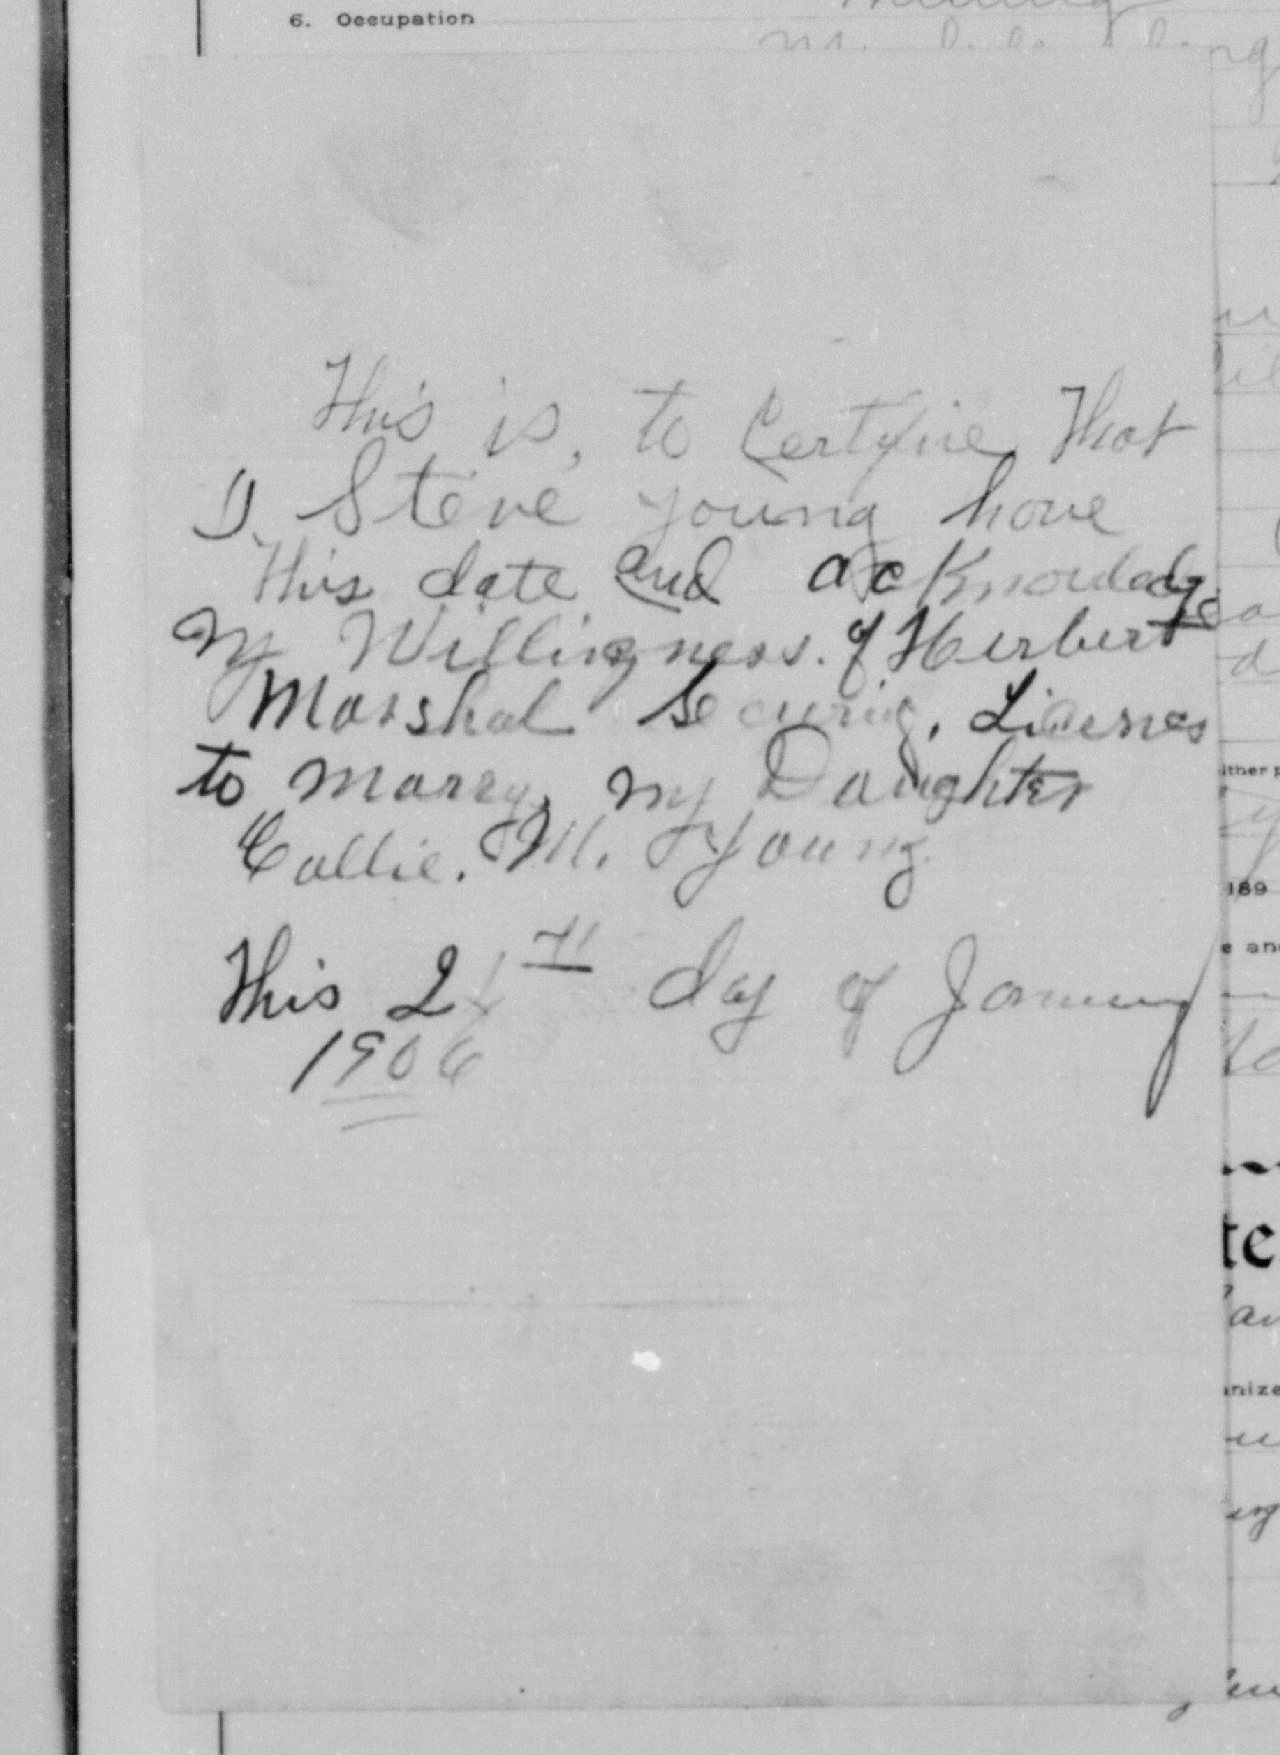 6. Occupation
This is, to Certyfie That
I, Steve Young have
This date and acKnowledge
My Willingness. of Herbert
Marshal Securing, Liecnes
to marry, my Daughter
Collie. M. Young.
This 2 th day of January
1906
ither p
189
e and
te
anize